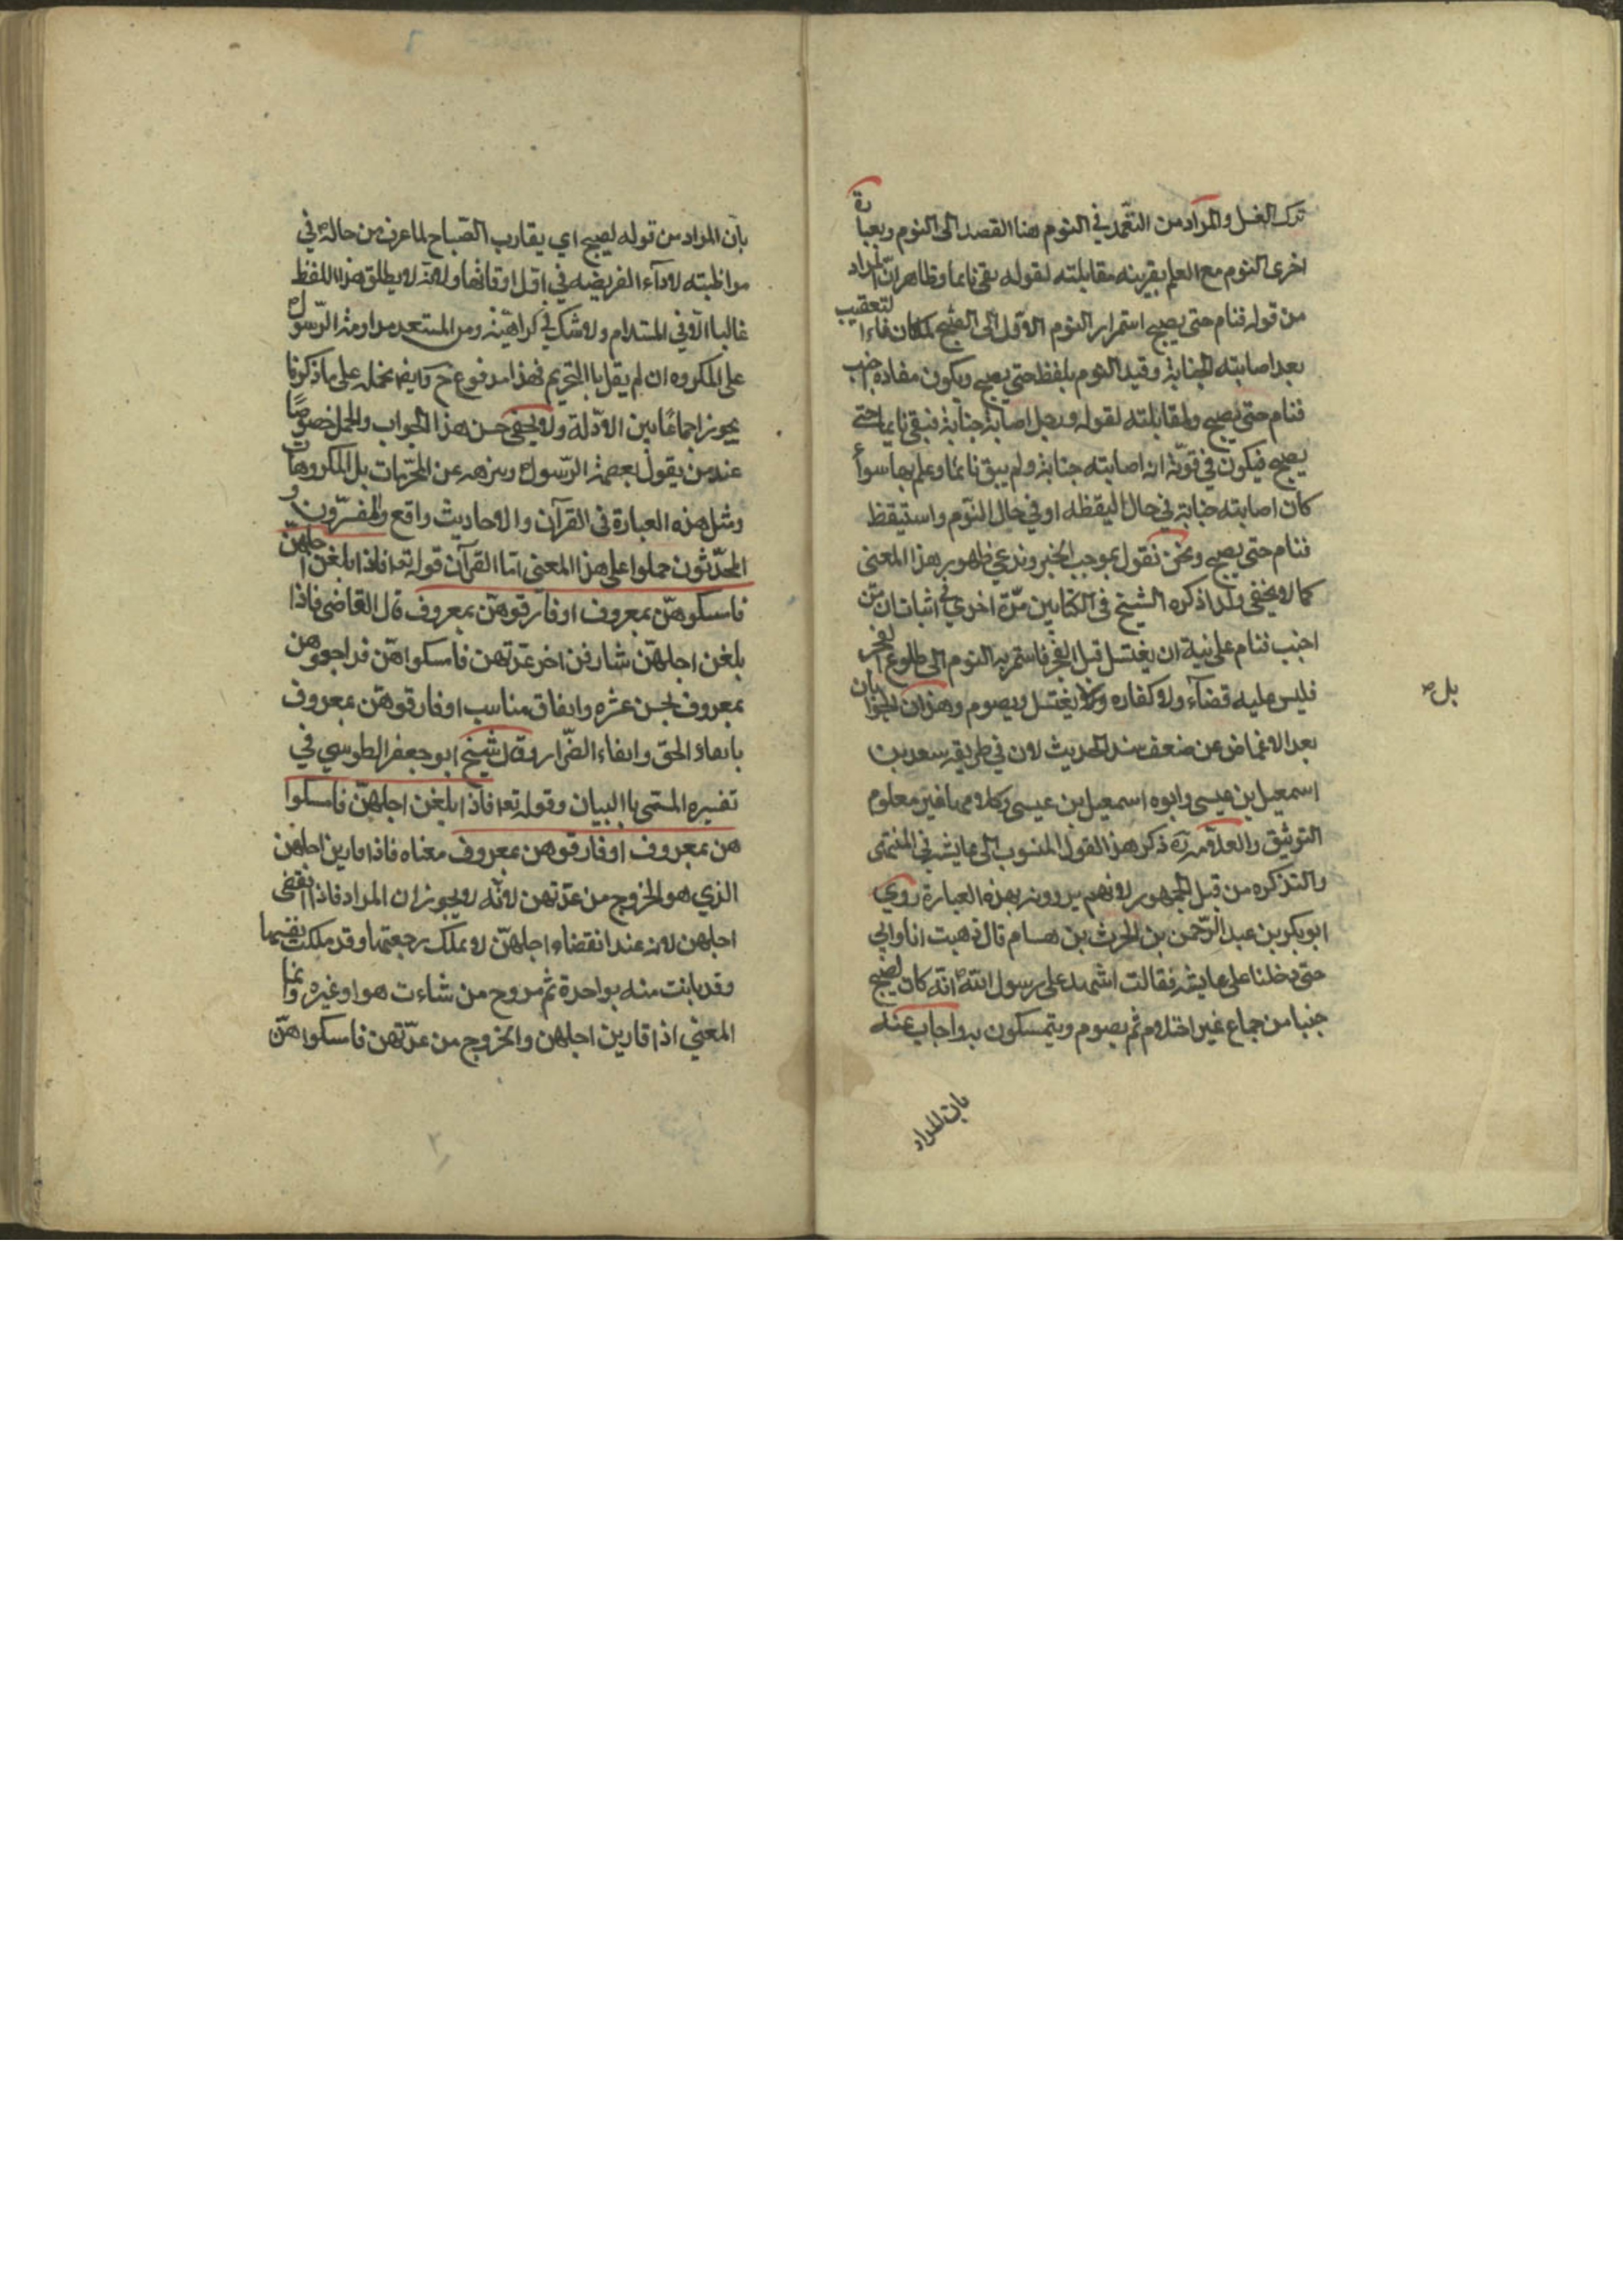 ترك الغسل والمراد من التعمد في النوم هنا القصد الى النوم وبعبارة
اخرى النوم مع العلم بقرينه مقابلته لقوله بقى نايما وظاهر انّ المراد
من قوله فنام حتى يصبح استمرار النوم الاول الى الصبح لمكان فاء التعقيب
بعد اصابته الجنابة وقيد النوم بلفظ حتى يصبح ويكون مفاده اجنب
فنام حتى يصبح ولمقابلته لقوله ورجل اصابته جنابة فبقى نايما حتى
يصبح فيكون في قوّة انه اصابته جنابة ولم يبق نائما وعلم بها سواءً
كان اصابته جنابة في حال اليقظه او في حال النوم واستيقظ
فنام حتى يصبح ونحن نقول بموجب الخبر وندعي ظهوره هذا المعنى
كما لا يخفى ولذا ذكره الشيخ في الكتابين مرّة اخرى في اثبات ان من
اجنب فنام على نية ان يغتسل قبل الفجر فاستمر به النوم الى طلوع الفجر
فليس عليه قضآء ولا كفاره وان يغتسل ويصوم وهذان الجوابان
بل ص
بعد الاغماض عن ضعف سند الحديث لان في طريقه سعد بن
اسمعيل بن عيسى وابوه اسمعيل بن عيسى وكلاهما غير معلوم
التوثيق والعلامه ره ذكر هذا القول المنسوب الى عايشه في المنتهى
والتذكره من قبل الجمهور لانهم يروونه بهذه العبارة روي
ابو بكر بن عبد الرّحمن بن الحرث بن هسام قال ذهبت انا وابي
حتى دخلنا على عايشه فقالت اشهد على رسول اللّه ص انّه كان ليصبح
جنبا من جماع غير احتلام ثم يصوم ويتمسكون به واجاب عنه
بان المراد
بان المراد من قوله ليصبح اي يقارب الصّباح لما عرف من حاله ص في
مواظبته لاداء الفريضه في اوّل اوقاتها ولانّه لا يطلق هذا اللفظ
غالبا الا في المستدام ولا شك في كراهيّته ومن المستبعد مداومة الرّسول ص
على المكروه ان لم يقل باالتحريم فهذا مدفوع ح وايضا نحمله على ما ذكرنا
يجوز اجماعًا بين الادّلة ولا يخفى حسن هذا الجواب والحمل خصوصًا
عند من يقول بعصمة الرّسول ص وينزهه عن المحرّمات بل المكروهات
ومثل هذه العبارة في القرآن والاحاديث واقع والمفسّرون و
المحدّثون حملوا على هذا المعنى امّا القرآن قوله تعا فاذا بلغن اجلهنّ
فامسكوهنّ بمعروف او فارقوهنّ بمعروف قال القاضى فاذا
بلغن اجلهنّ شارفن اخر عدّتهن فامسكوا هنّ فراجعوهن
بمعروف بحسن عشره وانفاق مناسب او فارقوهنّ بمعروف
بايفاء الحق وابقاء الضّرار وقال شيخ ابو جعفر الطوسي في
تفسيره المسمى باالبيان وقوله تعا فاذا بلغن اجلهنّ فامسكوا
هن بمعروف او فارقوهن بمعروف معناه فاذا قاربن اجلهن
الذي هو الخروج من عدّتهن لانّه لا يجوز ان المراد فاذا انقضى
اجلهن لانه عند انقضاء اجلهنّ لا يملك رجعتها وقد ملكت نفسها
وقد بانت منه بواحدة ثم تزوج من شاءت هو او غيره وانما
المعنى اذا قاربن اجلهن والخروج من عدّتهن فامسكوا هنّ